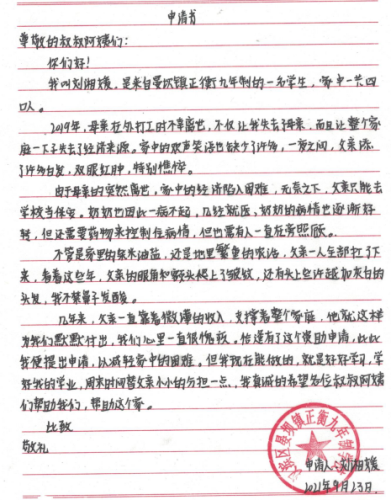 申请书
尊敬的叔叔阿姨们:
你们好!
我叫刘湘媛,是来自晏坝镇正衡九年制的一名学生,家中一共四
口人。
2019年,母亲在外打工时不幸离世,不仅让我失去了母亲,而且让整个家
庭一下子失去了经济来源。家中的欢声笑语也缺少了许多,一夜之间,父亲添
了许多白发,双眼红肿,特别憔悴。
由于母亲的突然离世,家中的经济陷入困难,无奈之下,父亲只能去
学校当保安。奶奶也因此一病不起,几经就医,奶奶的病情也逐渐好
转,但还需要药物来控制住病情,但也需有人一直在旁照顾。
不管是家里的柴米油盐,还是地里繁重的农活,父亲一人全部扛了下
来,看着这些年,父亲的眼角和额头爬上了皱纹,还有头上些许越加灰白的
头发,我不禁鼻子发酸。
几年来,父亲一直靠着微薄的收入,支撑着整个家庭,他就这样
为我们默默付出,我们心里一直很愧疚。恰逢有了这个资助申请,
我便提出申请,以减轻家中的困难。但我现在能做的,就是好好学习,学
好我的学业,周末时间替父亲小小的分担一点,我真诚的希望各位叔叔阿姨
们帮助我们,帮助这个家。
此致
敬礼
申请人:刘湘媛
2021年9月13日
汉滨区晏坝镇正衡九年制学校